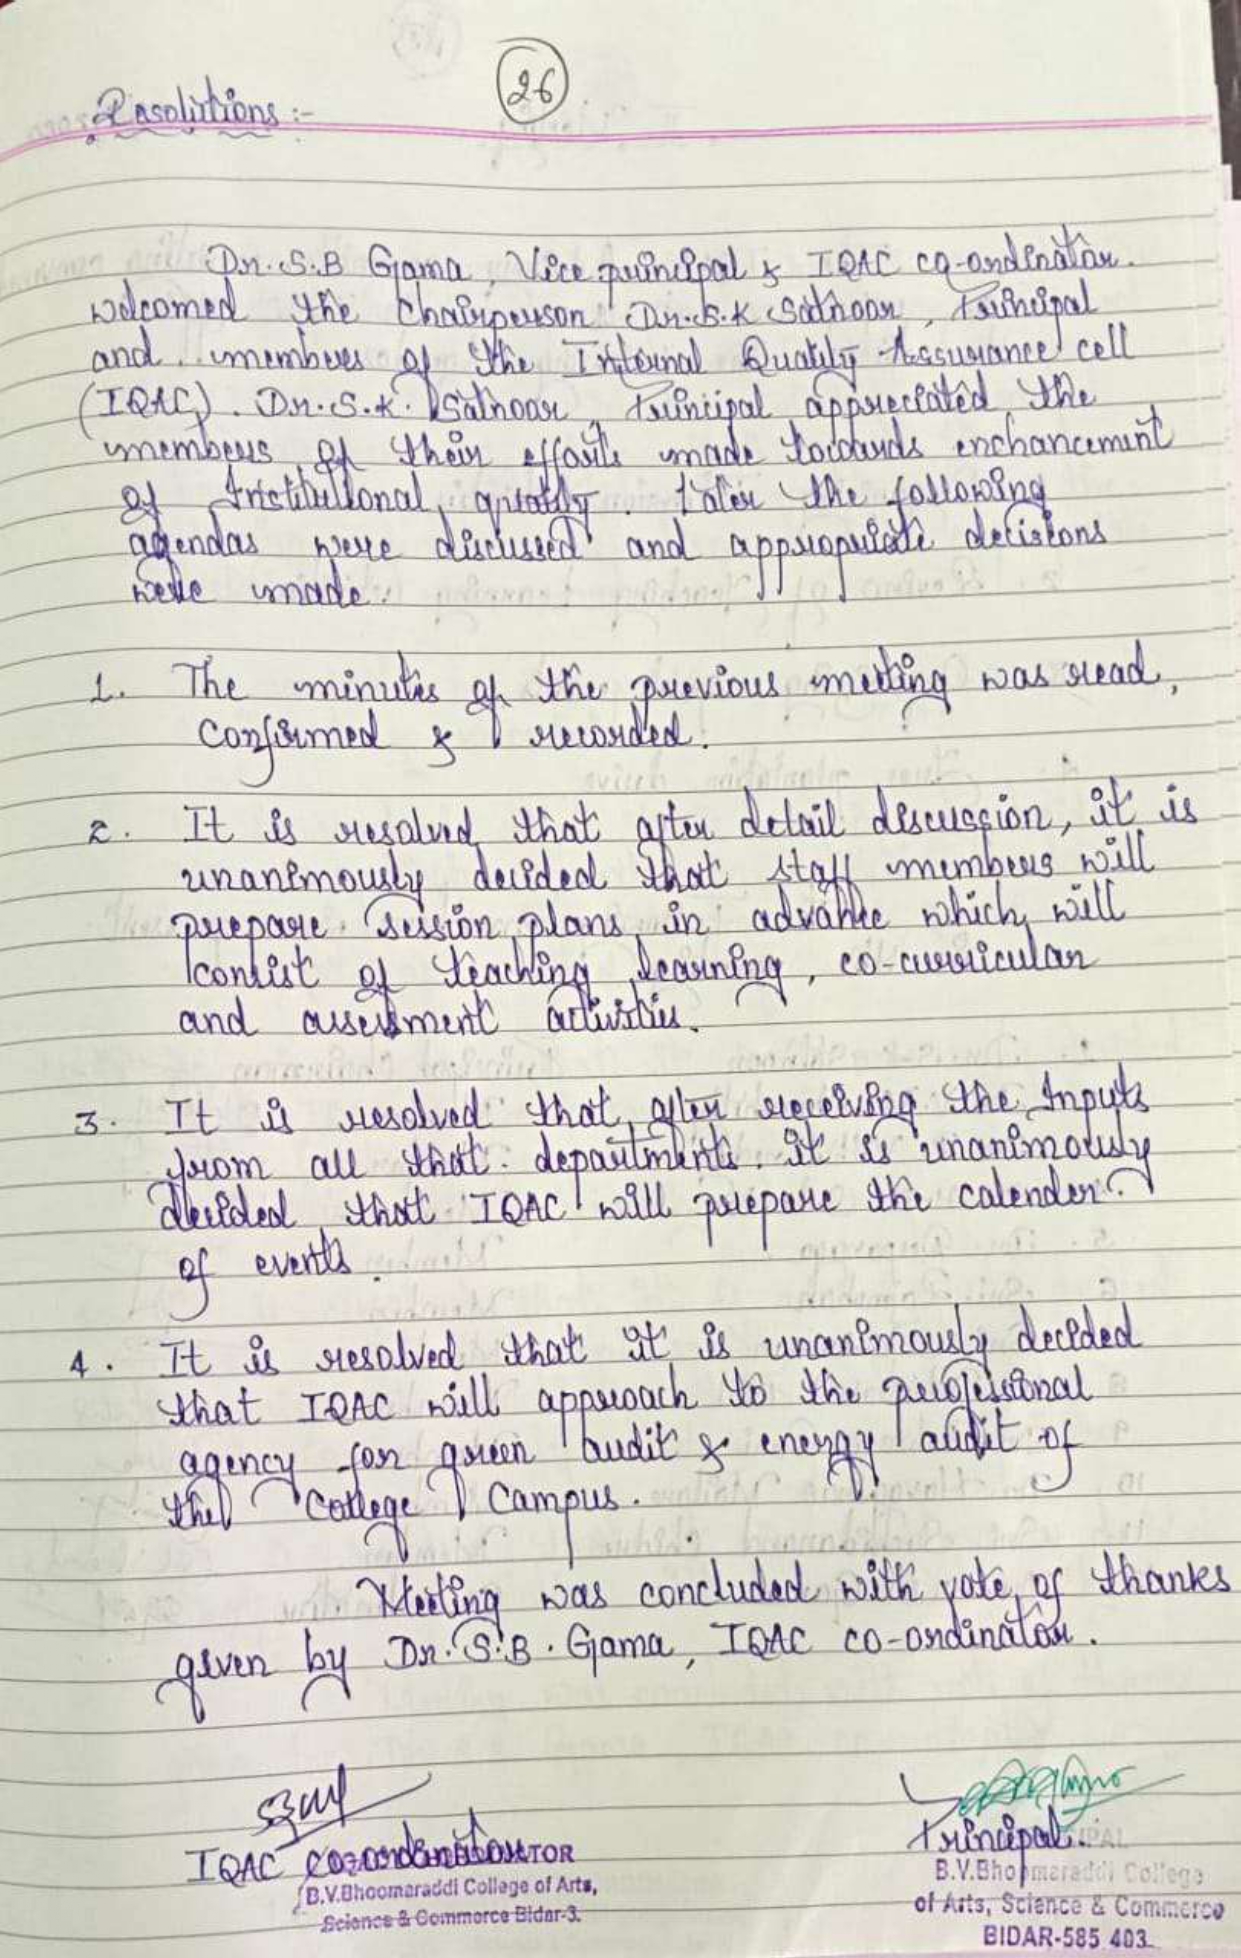 26
Resolutions :-
Dr. S.B Gama, Vice principal & IQAC co-ordinator.
welcomed the Chairperson Dr. S.K Satnoor, Principal
and members of the Internal Quality Assurance cell
(IQAC). Dr. S.K. Satnoor, Principal appreciated the
members of their efforts made towards enchancement
of Institutional quality. Later the following
agendas were discussed and appropriate decisions
were made.
1. The minutes of the previous meeting was read,
confirmed & recorded.
2. It is resolved that after detail discussion, it is
unanimously decided that staff members will
prepare session plans in advance which will
consist of teaching learning, co-curricular
and assessment activities.
3. It is resolved that after receiving the Inputs
from all that departments. it is unanimously
decided that IQAC will prepare the calender
of events.
4. It is resolved that it is unanimously decided
that IQAC will approach to the professional
agency for green audit & energy audit of
the College Campus.
Meeting was concluded with vote of thanks
given by Dr. S.B. Gama, IQAC co-ordinator.
IQAC co-ordinator
B.V.Bhoomaraddi College of Arts,
Science & Commerce Bidar-3.
Principal.
B.V.Bhoomaraddi College
of Arts, Science & Commerce
BIDAR-585 403.